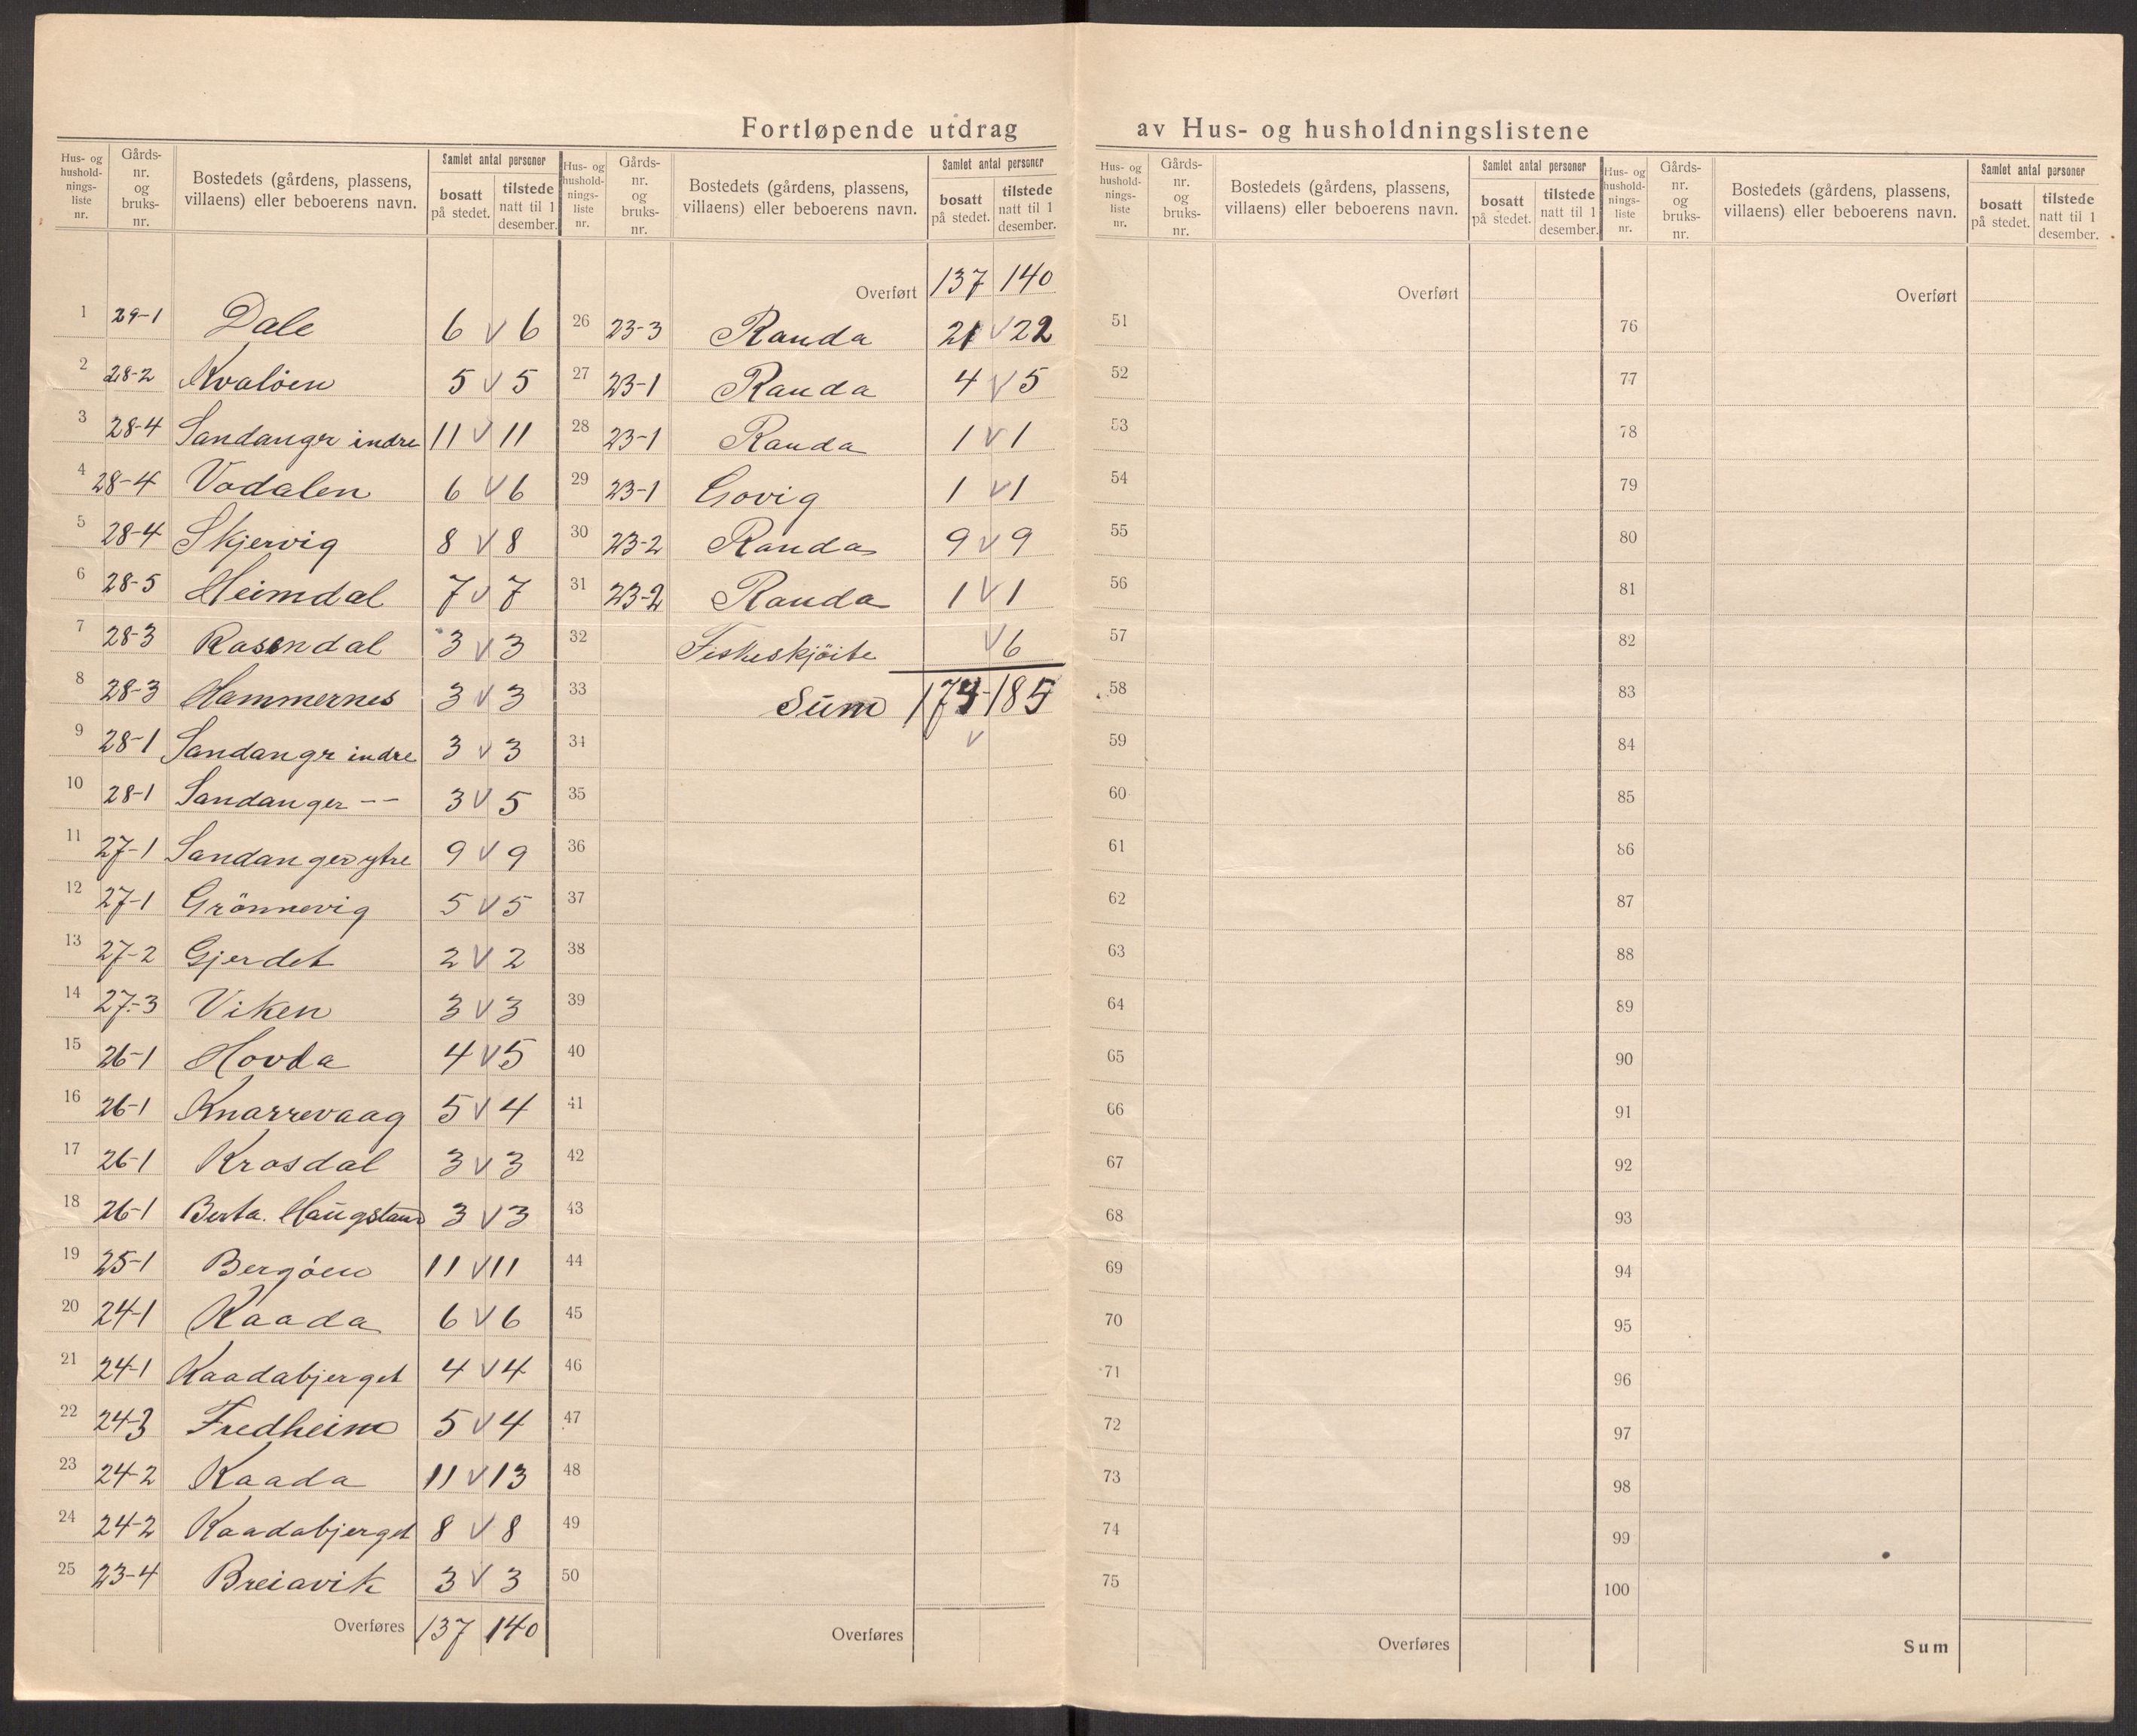 Fortløpende utdrag av Hus- og husholdningslistene
Hus- og husholdnings-liste nr. | Gårds-nr. og bruks-nr. | Bostedets (gårdens, plassens, villaens) eller beboerens navn. | Samlet antal personer | bosatt på stedet. | tilstede natt til 1 desember.
1 29-1 Dale 6 V 6
2 28-2 Kvaløen 5 V 5
3 28-4 Sandangr indre 11 V 11
4 28-4 Vodalen 6 V 6
5 28-4 Skjervig 8 V 8
6 28-5 Heimdal 7 V 7
7 28-3 Rosendal 3 V 3
8 28-3 Hammernes 3 V 3
9 28-1 Sandangr indre 3 V 3
10 28-1 Sandanger -- 3 V 5
11 27-1 Sandanger ytre 9 V 9
12 27-1 Grönnevig 5 V 5
13 27-2 Gjerdet 2 V 2
14 27-3 Viken 3 V 3
15 26-1 Hovda 4 V 5
16 26-1 Knarrevaag 5 V 4
17 26-1 Krosdal 3 V 3
18 26-1 Berta. Haugstand 3 V 3
19 25-1 Bergöen 11 V 11
20 24-1 Kaada 6 V 6
21 24-1 Kaadabjerget 4 V 4
22 24-3 Fredheim 5 V 4
23 24-2 Kaada 11 V 13
24 24-2 Kaadabjerget 8 V 8
25 23-4 Breiavik 3 V 3
Overføres 137 140
Hus- og husholdnings-liste nr. | Gårds-nr. og bruks-nr. | Bostedets (gårdens, plassens, villaens) eller beboerens navn. | Samlet antal personer | bosatt på stedet. | tilstede natt til 1 desember.
Overført 137 140
26 23-3 Randa 21 V 22
27 23-1 Randa 4 V 5
28 23-1 Randa 1 V 1
29 23-1 Govig 1 V 1
30 23-2 Randa 9 V 9
31 23-2 Randa 1 V 1
32 Fiskeskjöite V 6
33 Sum 174-185
34 V
35
36
37
38
39
40
41
42
43
44
45
46
47
48
49
50
Overføres
Hus- og husholdnings-liste nr. | Gårds-nr. og bruks-nr. | Bostedets (gårdens, plassens, villaens) eller beboerens navn. | Samlet antal personer | bosatt på stedet. | tilstede natt til 1 desember.
Overført
51
52
53
54
55
56
57
58
59
60
61
62
63
64
65
66
67
68
69
70
71
72
73
74
75
Overføres
Hus- og husholdnings-liste nr. | Gårds-nr. og bruks-nr. | Bostedets (gårdens, plassens, villaens) eller beboerens navn. | Samlet antal personer | bosatt på stedet. | tilstede natt til 1 desember.
Overført
76
77
78
79
80
81
82
83
84
85
86
87
88
89
90
91
92
93
94
95
96
97
98
99
100
Sum